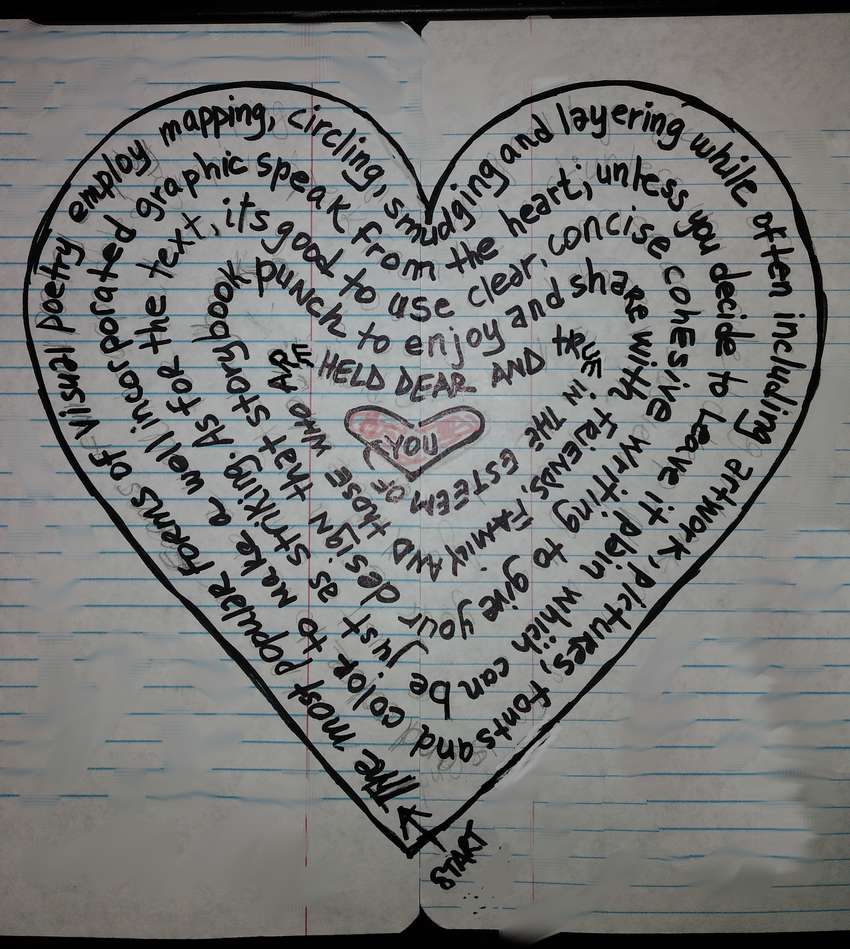 START
The most popular forms of visual poetry employ mapping, circling, smudging and layering while often including artwork, pictures, fonts and
color to make a well incorporated graphic speak from the heart; unless you decide to leave it plain which can be
just as striking. As for the text, its good to use clear, concise cohesive writing to give your
design that storybook punch to enjoy and share with FRIENDS, FAMILY AND
THOSE WHO ARE HELD DEAR AND TRUE IN THE ESTEEM OF
YOU